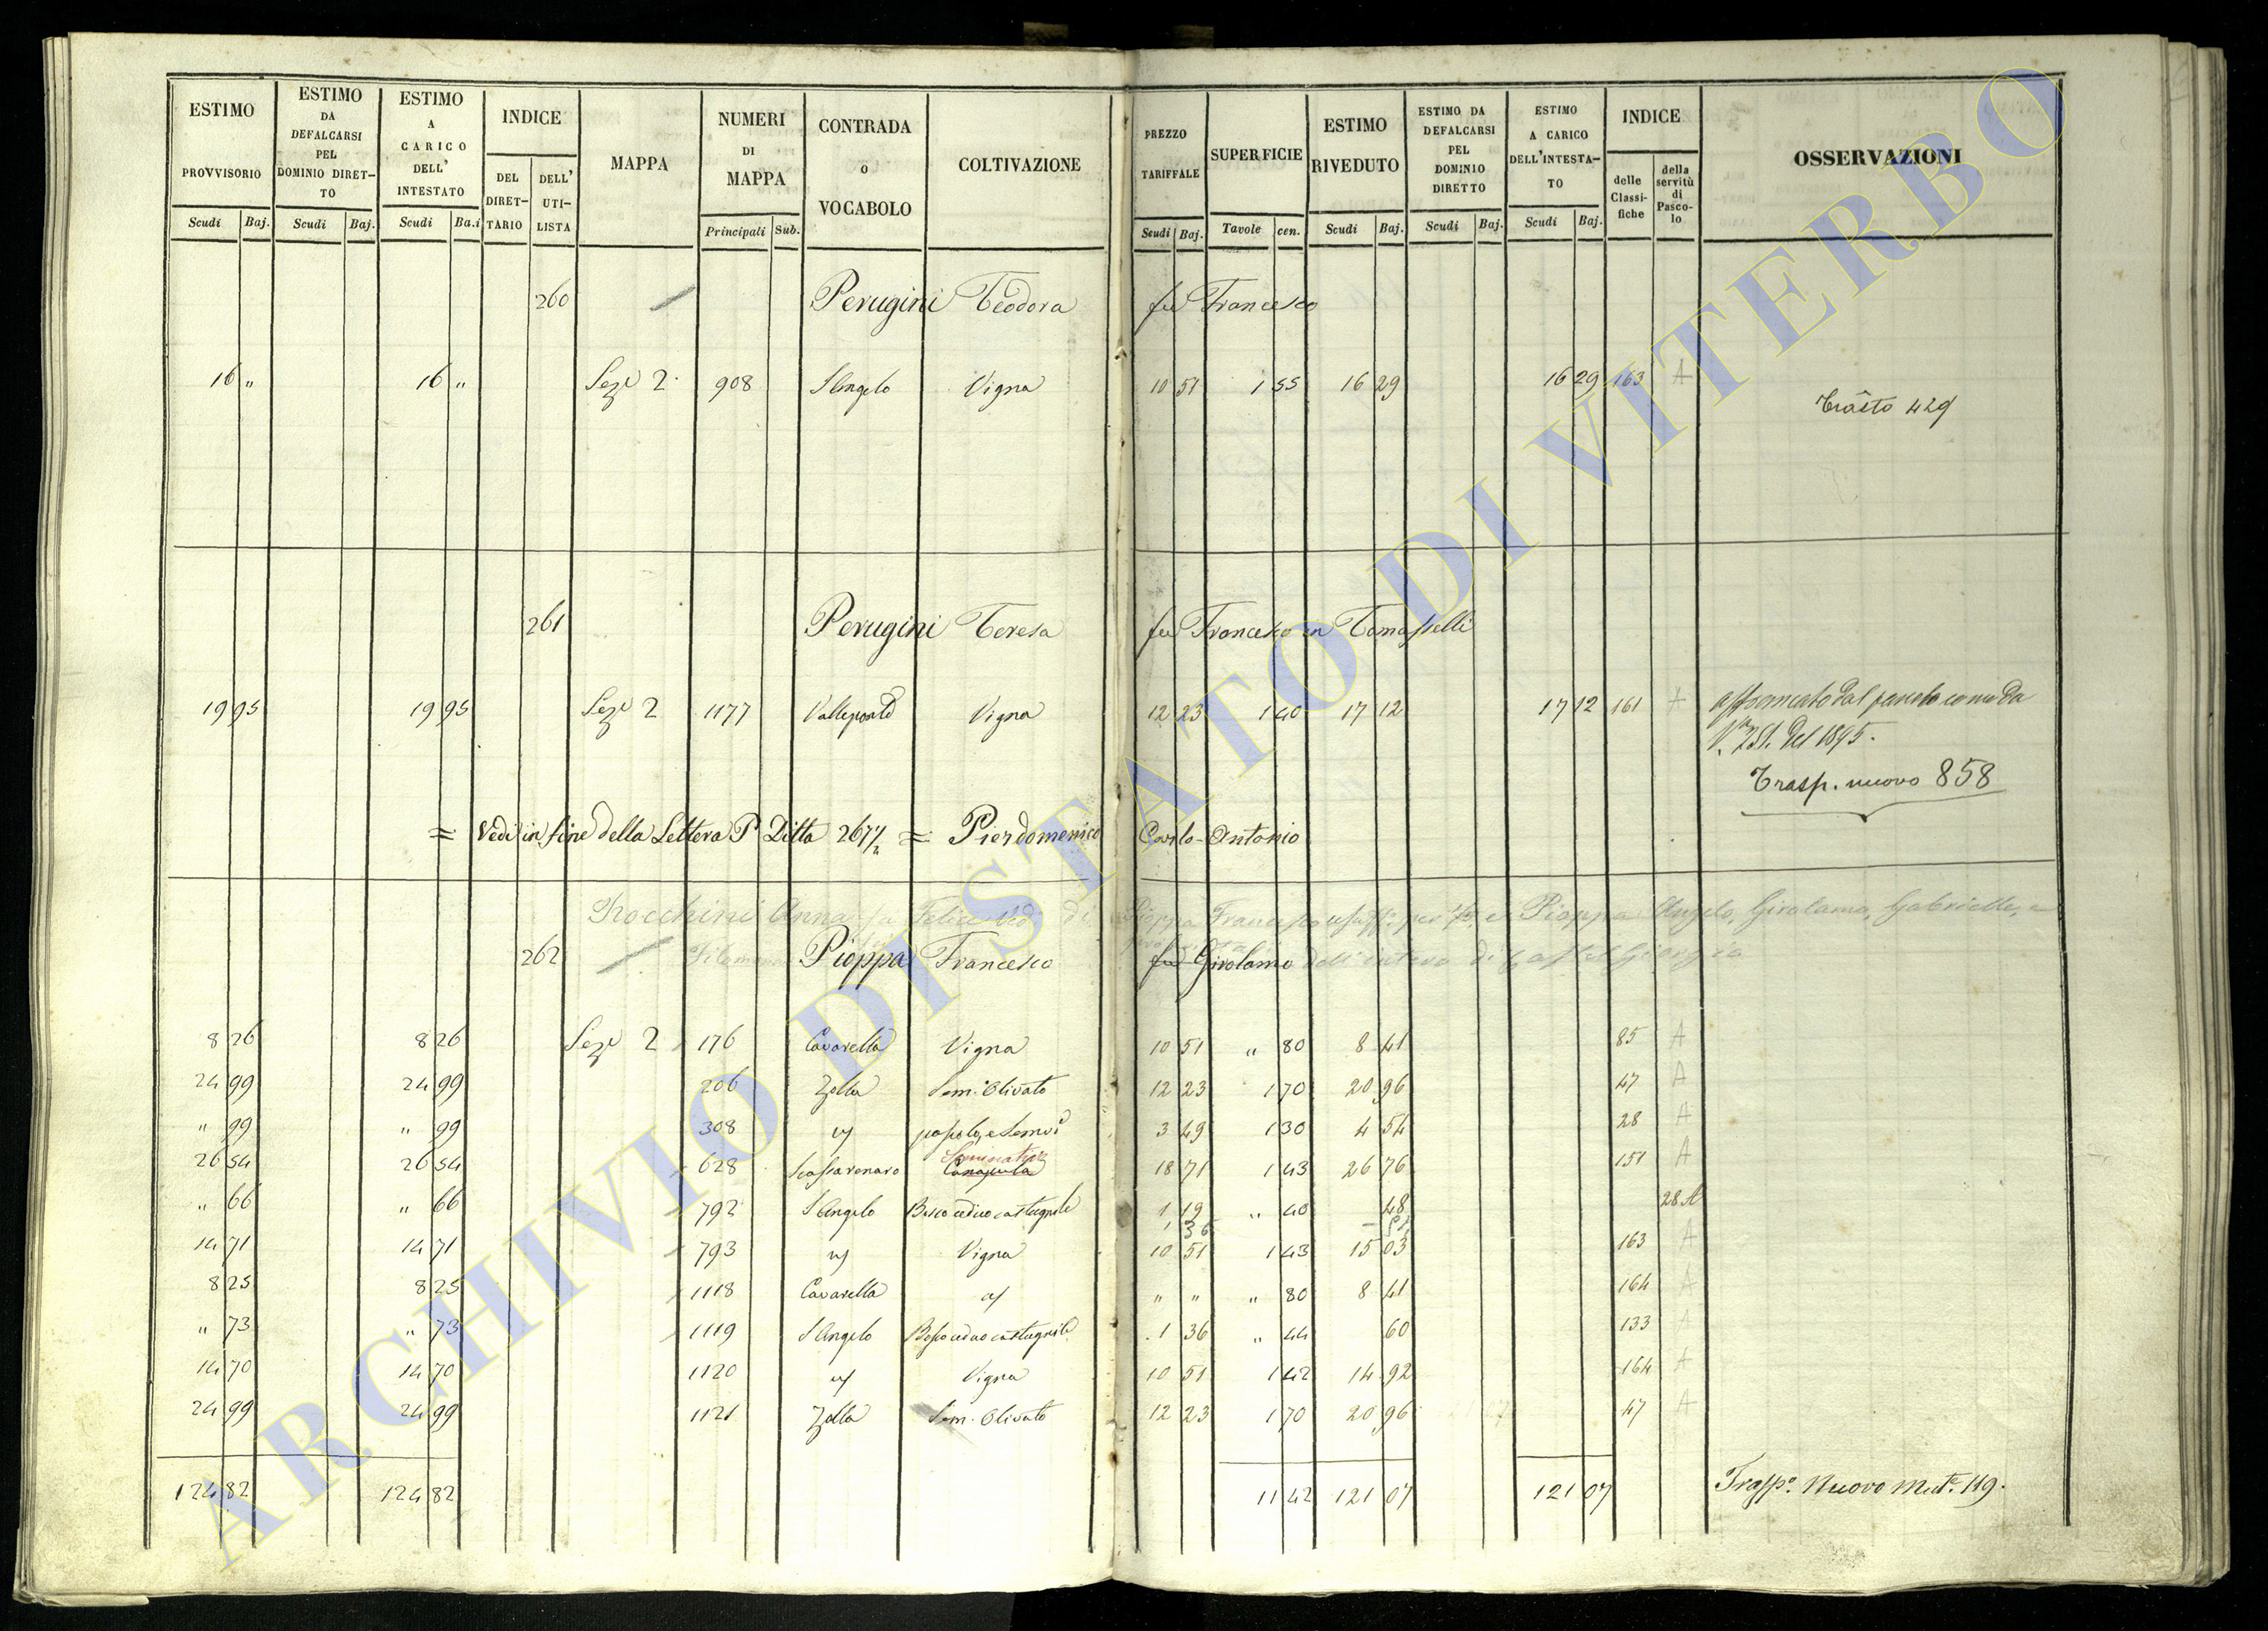 ESTIMO PROVVISORIO Scudi Baj.
ESTIMO DA DEFALCARSI PEL DOMINIO DIRET-TO Scudi Baj.
ESTIMO A CARICO DELL' INTESTATO Scudi Ba.i
INDICE DEL DIRET-TARIO DELL' UTI-LISTA
MAPPA
NUMERI DI MAPPA Principali Sub.
CONTRADA o VOCABOLO
COLTIVAZIONE
PREZZO TARIFFALE Scudi Baj.
SUPERFICIE Tavole cen.
ESTIMO RIVEDUTO Scudi Baj.
ESTIMO DA DEFALCARSI PEL DOMINIO DIRETTO Scudi Baj.
ESTIMO A CARICO DELL'INTESTA-TO Scudi Baj.
INDICE delle Classi-fiche della servitù di Pasco-lo
OSSERVAZIONI
260 Perugini Teodora fu Francesco
16 " 16 " Sez.e 2. 908 S Angelo Vigna 10 51 1 55 16 29 16 29 163 A
Trasto 429
261 Perugini Teresa fu Francesco in Tomasselli
19 95 19 95 Sez.e 2 1177 Valleponte Vigna 12 23 1 40 17 12 17 12 161 A affrancato dal pascolo come da
del 1895.
Trasp. nuovo 858
= Vedi in fine della Lettera P Ditta 267 1/2 = Pierdomenico Carlo-Antonio
Rocchini Anna fu Felice Ved. di Pioppa Francesco usuff. per e Pioppa Angelo, Girolamo, Gabrielle, e
262 Filomena Pioppa Francesco fu Girolamo dell'intero di Castel Giorgio
8 26 8 26 Sez.e 2 176 Cavarella Vigna 10 51 " 80 8 41 85 A
24 99 24 99 206 Zolla Sem. Olivato 12 23 1 70 20 96 47 A
" 99 " 99 308 3 49 1 30 4 54 28 A
26 54 26 54 628 Seminativo 18 71 1 43 26 76 151 A
" 66 " 66 792 S Angelo Bosco ceduo castagnile 1 19 " 40 48 28 A
1 36
14 71 14 71 793 Vigna 10 51 1 43 15 03 163 A
8 25 8 25 1118 Cavarella " " " 80 8 41 164 A
" 73 " 73 1119 S Angelo Bosco ceduo castagnile 1 36 " 44 60 133 A
14 70 14 70 1120 Vigna 10 51 1 42 14 92 164 A
24 99 24 99 1121 Zolla Sem. Olivato 12 23 1 70 20 96 47 A
124 82 124 82 11 42 121 07 121 07 Trasp.o Nuovo Mut.e 119.
ARCHIVIO DI STATO DI VITERBO